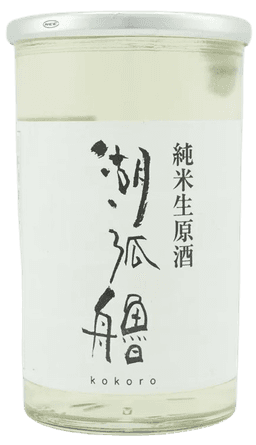 純米生原酒
湖弧艪
kokoro